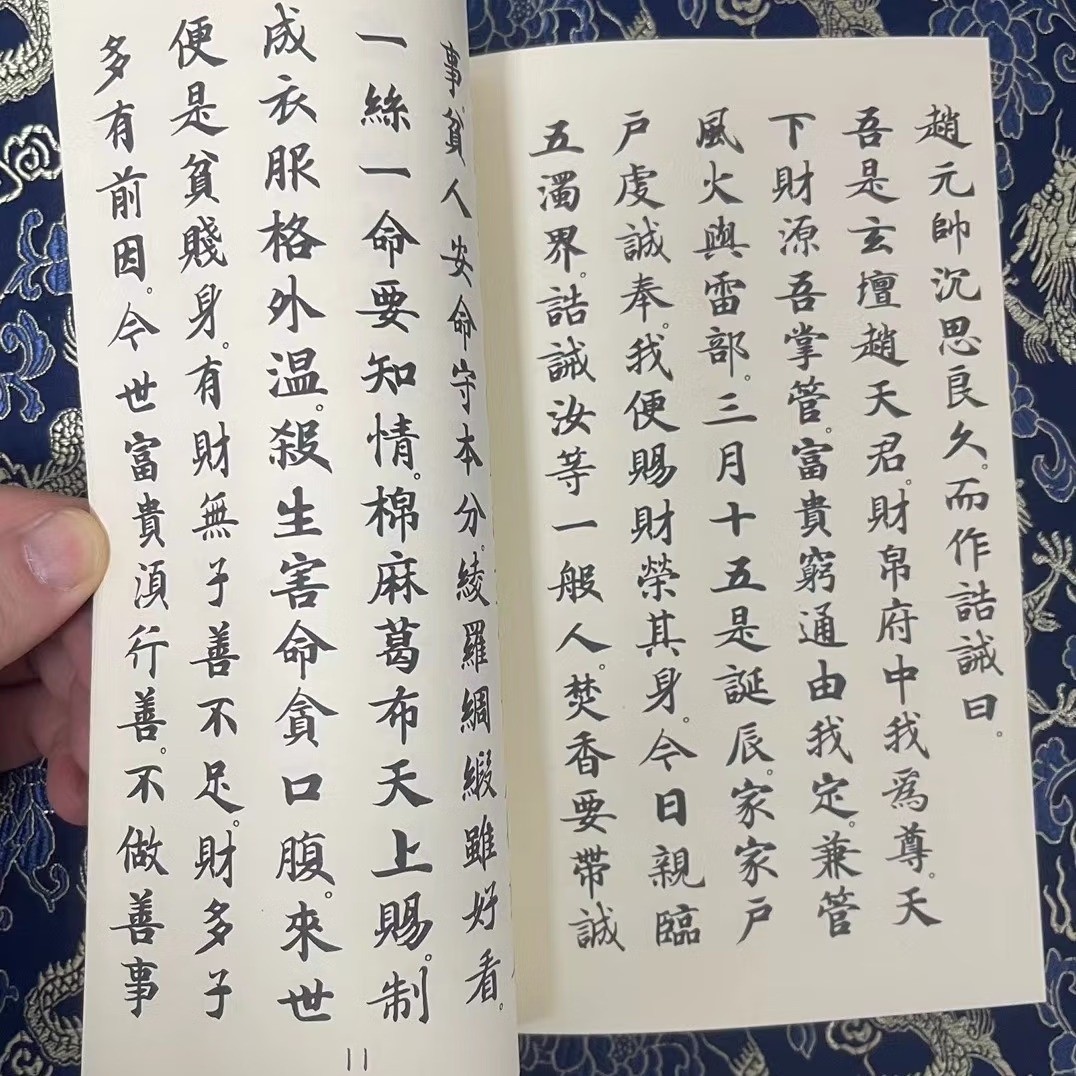 趙元帥沉思良久。而作誥誡曰。
吾是玄壇趙天君。財帛府中我爲尊。天
下財源吾掌管。富貴窮通由我定。兼管
風火與雷部。三月十五是誕辰。家家戶
戶虔誠奉。我便賜財榮其身。今日親臨
五濁界。誥誡汝等一般人。焚香要帶誠
事。貧人安命守本分。綾羅綢緞雖好看。
一絲一命要知情。棉麻葛布天上賜。制
成衣服格外温。殺生害命貪口腹。來世
便是貧賤身。有財無子善不足。財多子
多有前因。今世富貴湏行善。不做善事
11